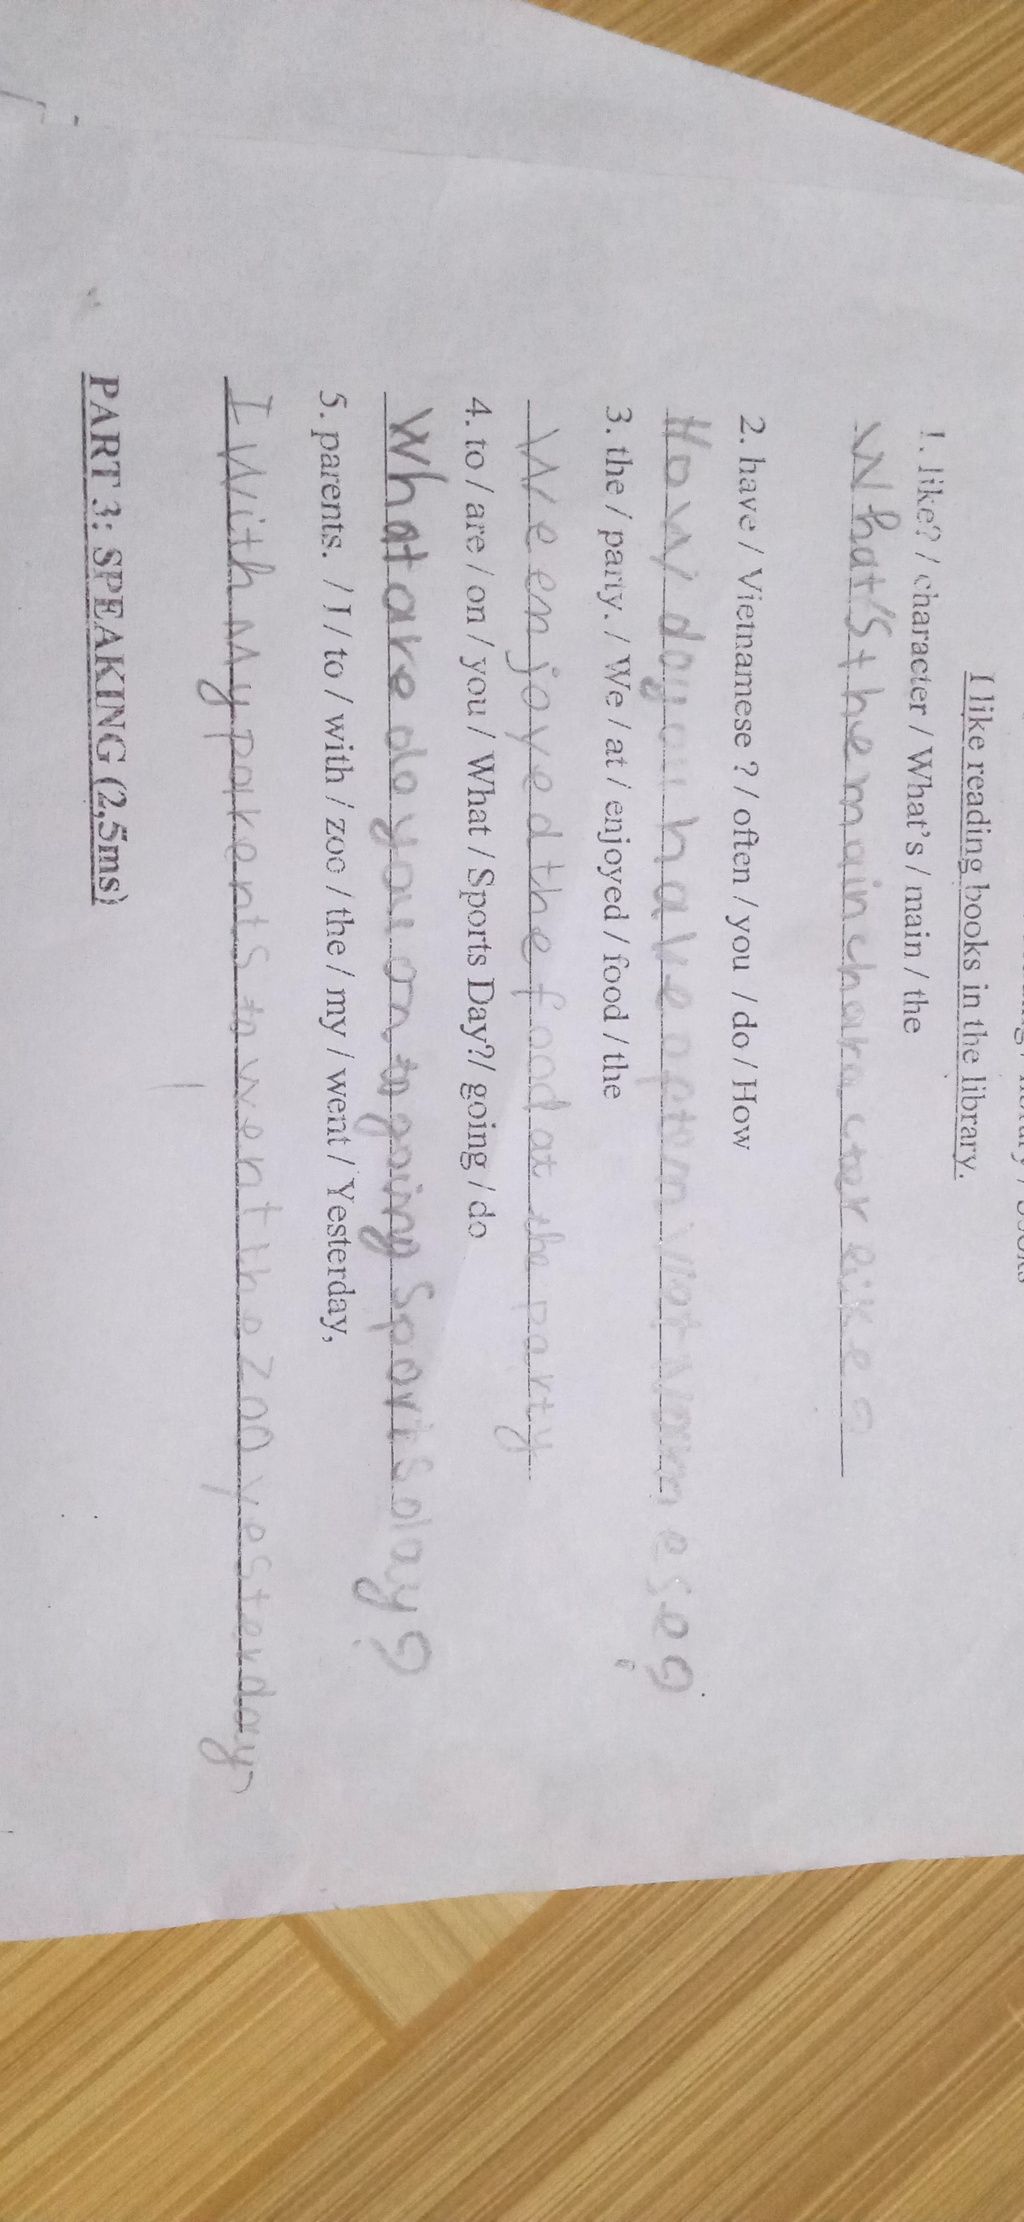 I like reading books in the library.
1. like? / character / What's / main / the
What's the main character like?
2. have / Vietnamese ? / often / you / do / How
How do you have optem
3. the / party. / We / at / enjoyed / food / the
We enjoyed the food at the party
4. to / are / on / you / What / Sports Day?/ going / do
What are do you on to going Sports day?
5. parents. / I / to / with / zoo / the / my / went / Yesterday,
I With My parents to went the zoo yesterday
PART 3: SPEAKING (2,5ms)